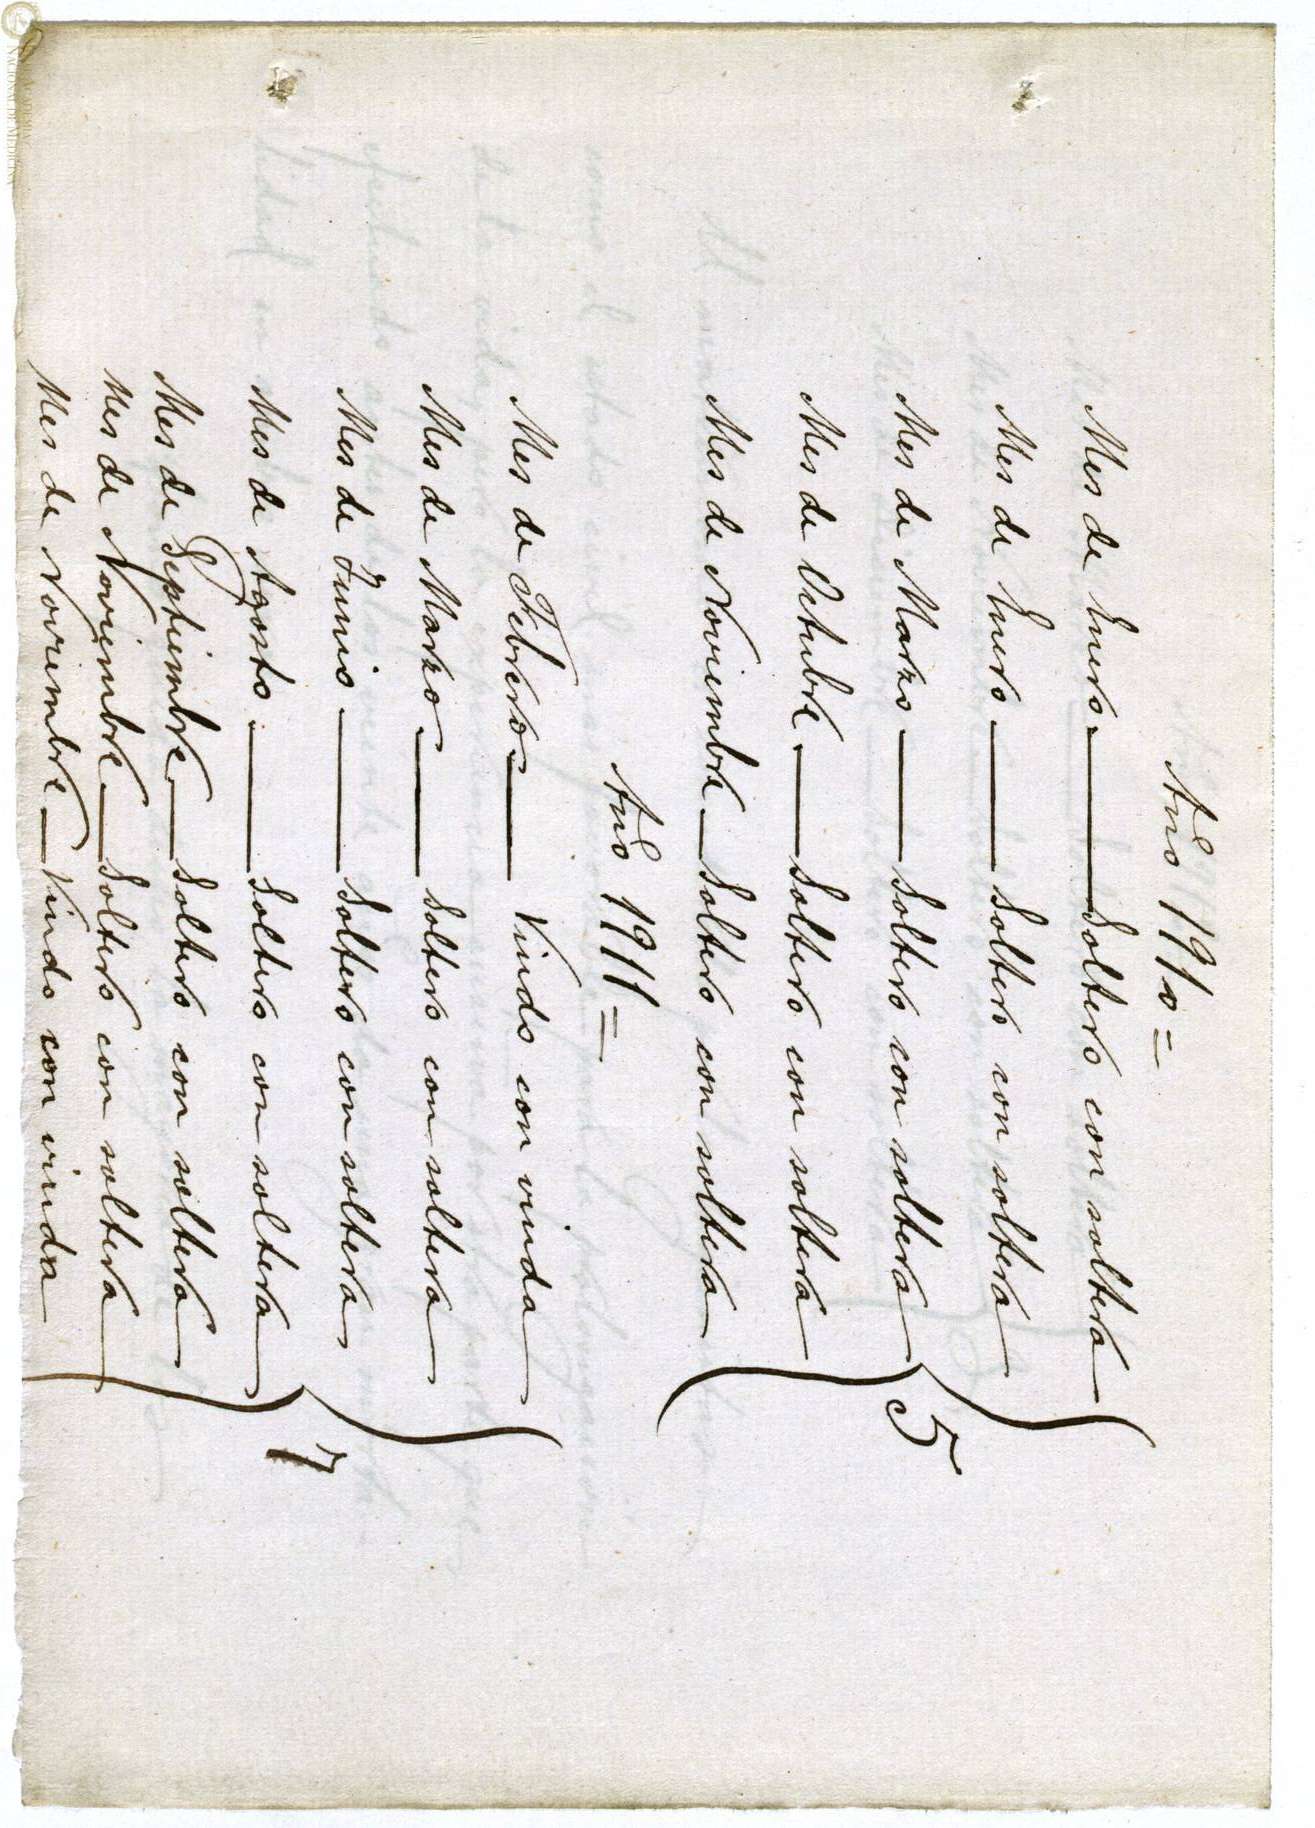 Año 1910=
Mes de Enero — Soltero con soltera
Mes de Enero — Soltero con soltera
Mes de Marzo — Soltero con soltera
Mes de Octubre — Soltero con soltera
Mes de Noviembre — Soltero con soltera
5
Año 1911=
Mes de Febrero — Viudo con viuda
Mes de Marzo — Soltero con soltera
Mes de Junio — Soltero con soltera
Mes de Agosto — Soltero con soltera
Mes de Septiembre — Soltero con soltera
Mes de Noviembre — Soltero con soltera
Mes de Noviembre — Viudo con viuda
7